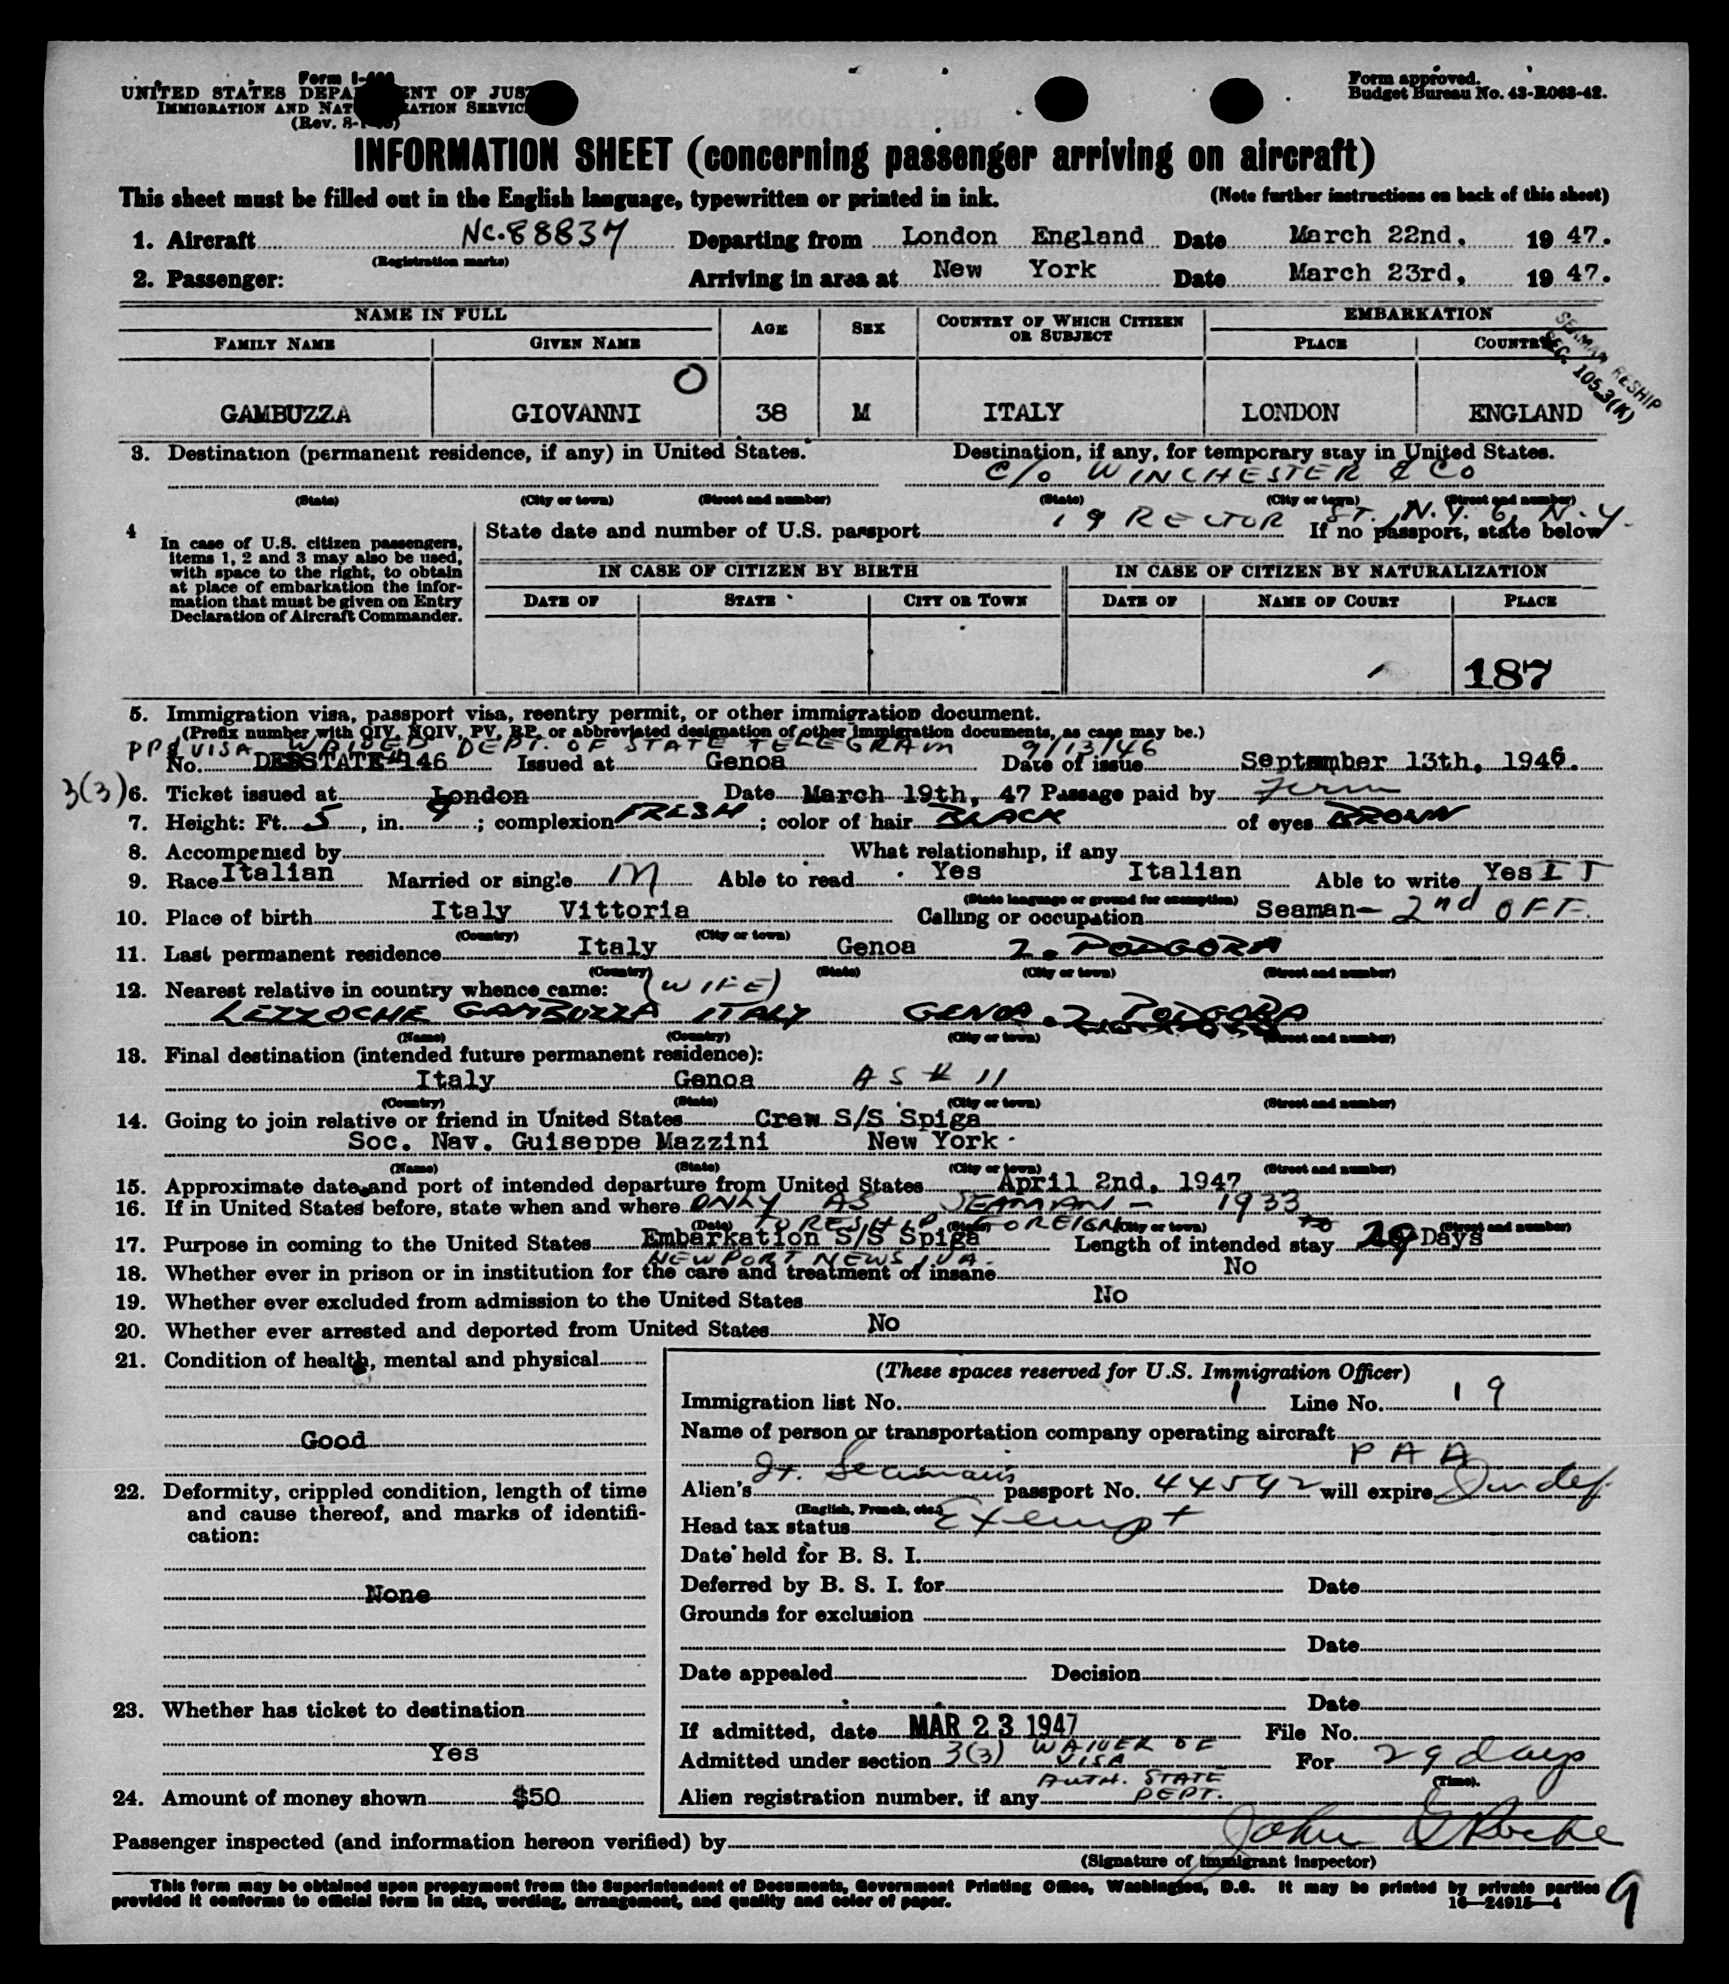 Form I-
UNITED STATES DEPA ENT OF JUS
IMMIGRATION AND NAT ATION SERVIC
(Rev. 8-
Form approved.
Budget Bureau No. 43-R063-42.
INFORMATION SHEET (concerning passenger arriving on aircraft)
This sheet must be filled out in the English language, typewritten or printed in ink. (Note further instructions on back of this sheet)
1. Aircraft NC.88837 Departing from London England Date March 22nd, 19 47.
(Registration marks)
2. Passenger: Arriving in area at New York Date March 23rd, 19 47.
NAME IN FULL AGE SEX COUNTRY OF WHICH CITIZEN OR SUBJECT EMBARKATION
FAMILY NAME GIVEN NAME PLACE COUNTRY
SEAMAN RESHIP
SEC. 105.3(K)
O
GAMBUZZA GIOVANNI 38 M ITALY LONDON ENGLAND
3. Destination (permanent residence, if any) in United States. Destination, if any, for temporary stay in United States.
C/O WINCHESTER & CO
(State) (City or town) (Street and number) (State) (City or town) (Street and number)
19 RECTOR ST., N.Y. 6, N.Y.
4 In case of U.S. citizen passengers, items 1, 2 and 3 may also be used, with space to the right, to obtain at place of embarkation the information that must be given on Entry Declaration of Aircraft Commander.
State date and number of U.S. passport If no passport, state below
IN CASE OF CITIZEN BY BIRTH IN CASE OF CITIZEN BY NATURALIZATION
DATE OF STATE CITY OR TOWN DATE OF NAME OF COURT PLACE
187
5. Immigration visa, passport visa, reentry permit, or other immigration document.
(Prefix number with QIV, NQIV, PV, RP, or abbreviated designation of other immigration documents, as case may be.)
PP & VISA WAIVED DEPT. OF STATE TELEGRAM 9/13/46
No. DESSTATE#146 Issued at Genoa Date of issue September 13th, 1946.
3(3) 6. Ticket issued at London Date March 19th, 47 Passage paid by Firm
7. Height: Ft. 5, in. 9; complexion FRESH; color of hair BLACK of eyes BROWN
8. Accompenied by What relationship, if any
9. Race Italian Married or single M Able to read Yes Italian Able to write Yes IT
(State language or ground for exemption)
10. Place of birth Italy Vittoria Calling or occupation Seaman- 2nd OFF.
(Country) (City or town)
11. Last permanent residence Italy Genoa 2. PODGORA
(Country) (State) (City or town) (Street and number)
12. Nearest relative in country whence came: (WIFE)
LEZZOCHE GAMBUZZA ITALY GENOA. 2 PODGORA
(Name) (Country) (City or town) (Street and number)
13. Final destination (intended future permanent residence):
Italy Genoa AS # 11
(Country) (State) (City or town) (Street and number)
14. Going to join relative or friend in United States Crew S/S Spiga
Soc. Nav. Guiseppe Mazzini New York
(Name) (State) (City or town) (Street and number)
15. Approximate date and port of intended departure from United States April 2nd, 1947
16. If in United States before, state when and where ONLY AS SEAMAN - 1933
(Date) (State) (City or town) (Street and number)
TO RESHIP FOREIGN
17. Purpose in coming to the United States Embarkation S/S Spiga Length of intended stay 29 Days
NEWPORT NEWS, VA.
18. Whether ever in prison or in institution for the care and treatment of insane No
19. Whether ever excluded from admission to the United States No
20. Whether ever arrested and deported from United States No
21. Condition of health, mental and physical
Good
22. Deformity, crippled condition, length of time and cause thereof, and marks of identification:
None
23. Whether has ticket to destination
Yes
24. Amount of money shown $50
(These spaces reserved for U.S. Immigration Officer)
Immigration list No. 1 Line No. 19
Name of person or transportation company operating aircraft
PAA
Alien's It. Seaman's passport No. 44592 will expire Indef.
(English, French, etc.)
Head tax status Exempt
Date held for B. S. I.
Deferred by B. S. I. for Date
Grounds for exclusion
Date
Date appealed Decision
Date
If admitted, date MAR 23 1947 File No.
Admitted under section 3(3) WAIVER OF VISA For 29 days
(Time).
AUTH. STATE DEPT.
Alien registration number, if any
Passenger inspected (and information hereon verified) by John Roche
(Signature of immigrant inspector)
This form may be obtained upon prepayment from the Superintendent of Documents, Government Printing Office, Washington, D.C. It may be printed by private parties
provided it conforms to official form in size, wording, arrangement, and quality and color of paper. 16—24915-4
9